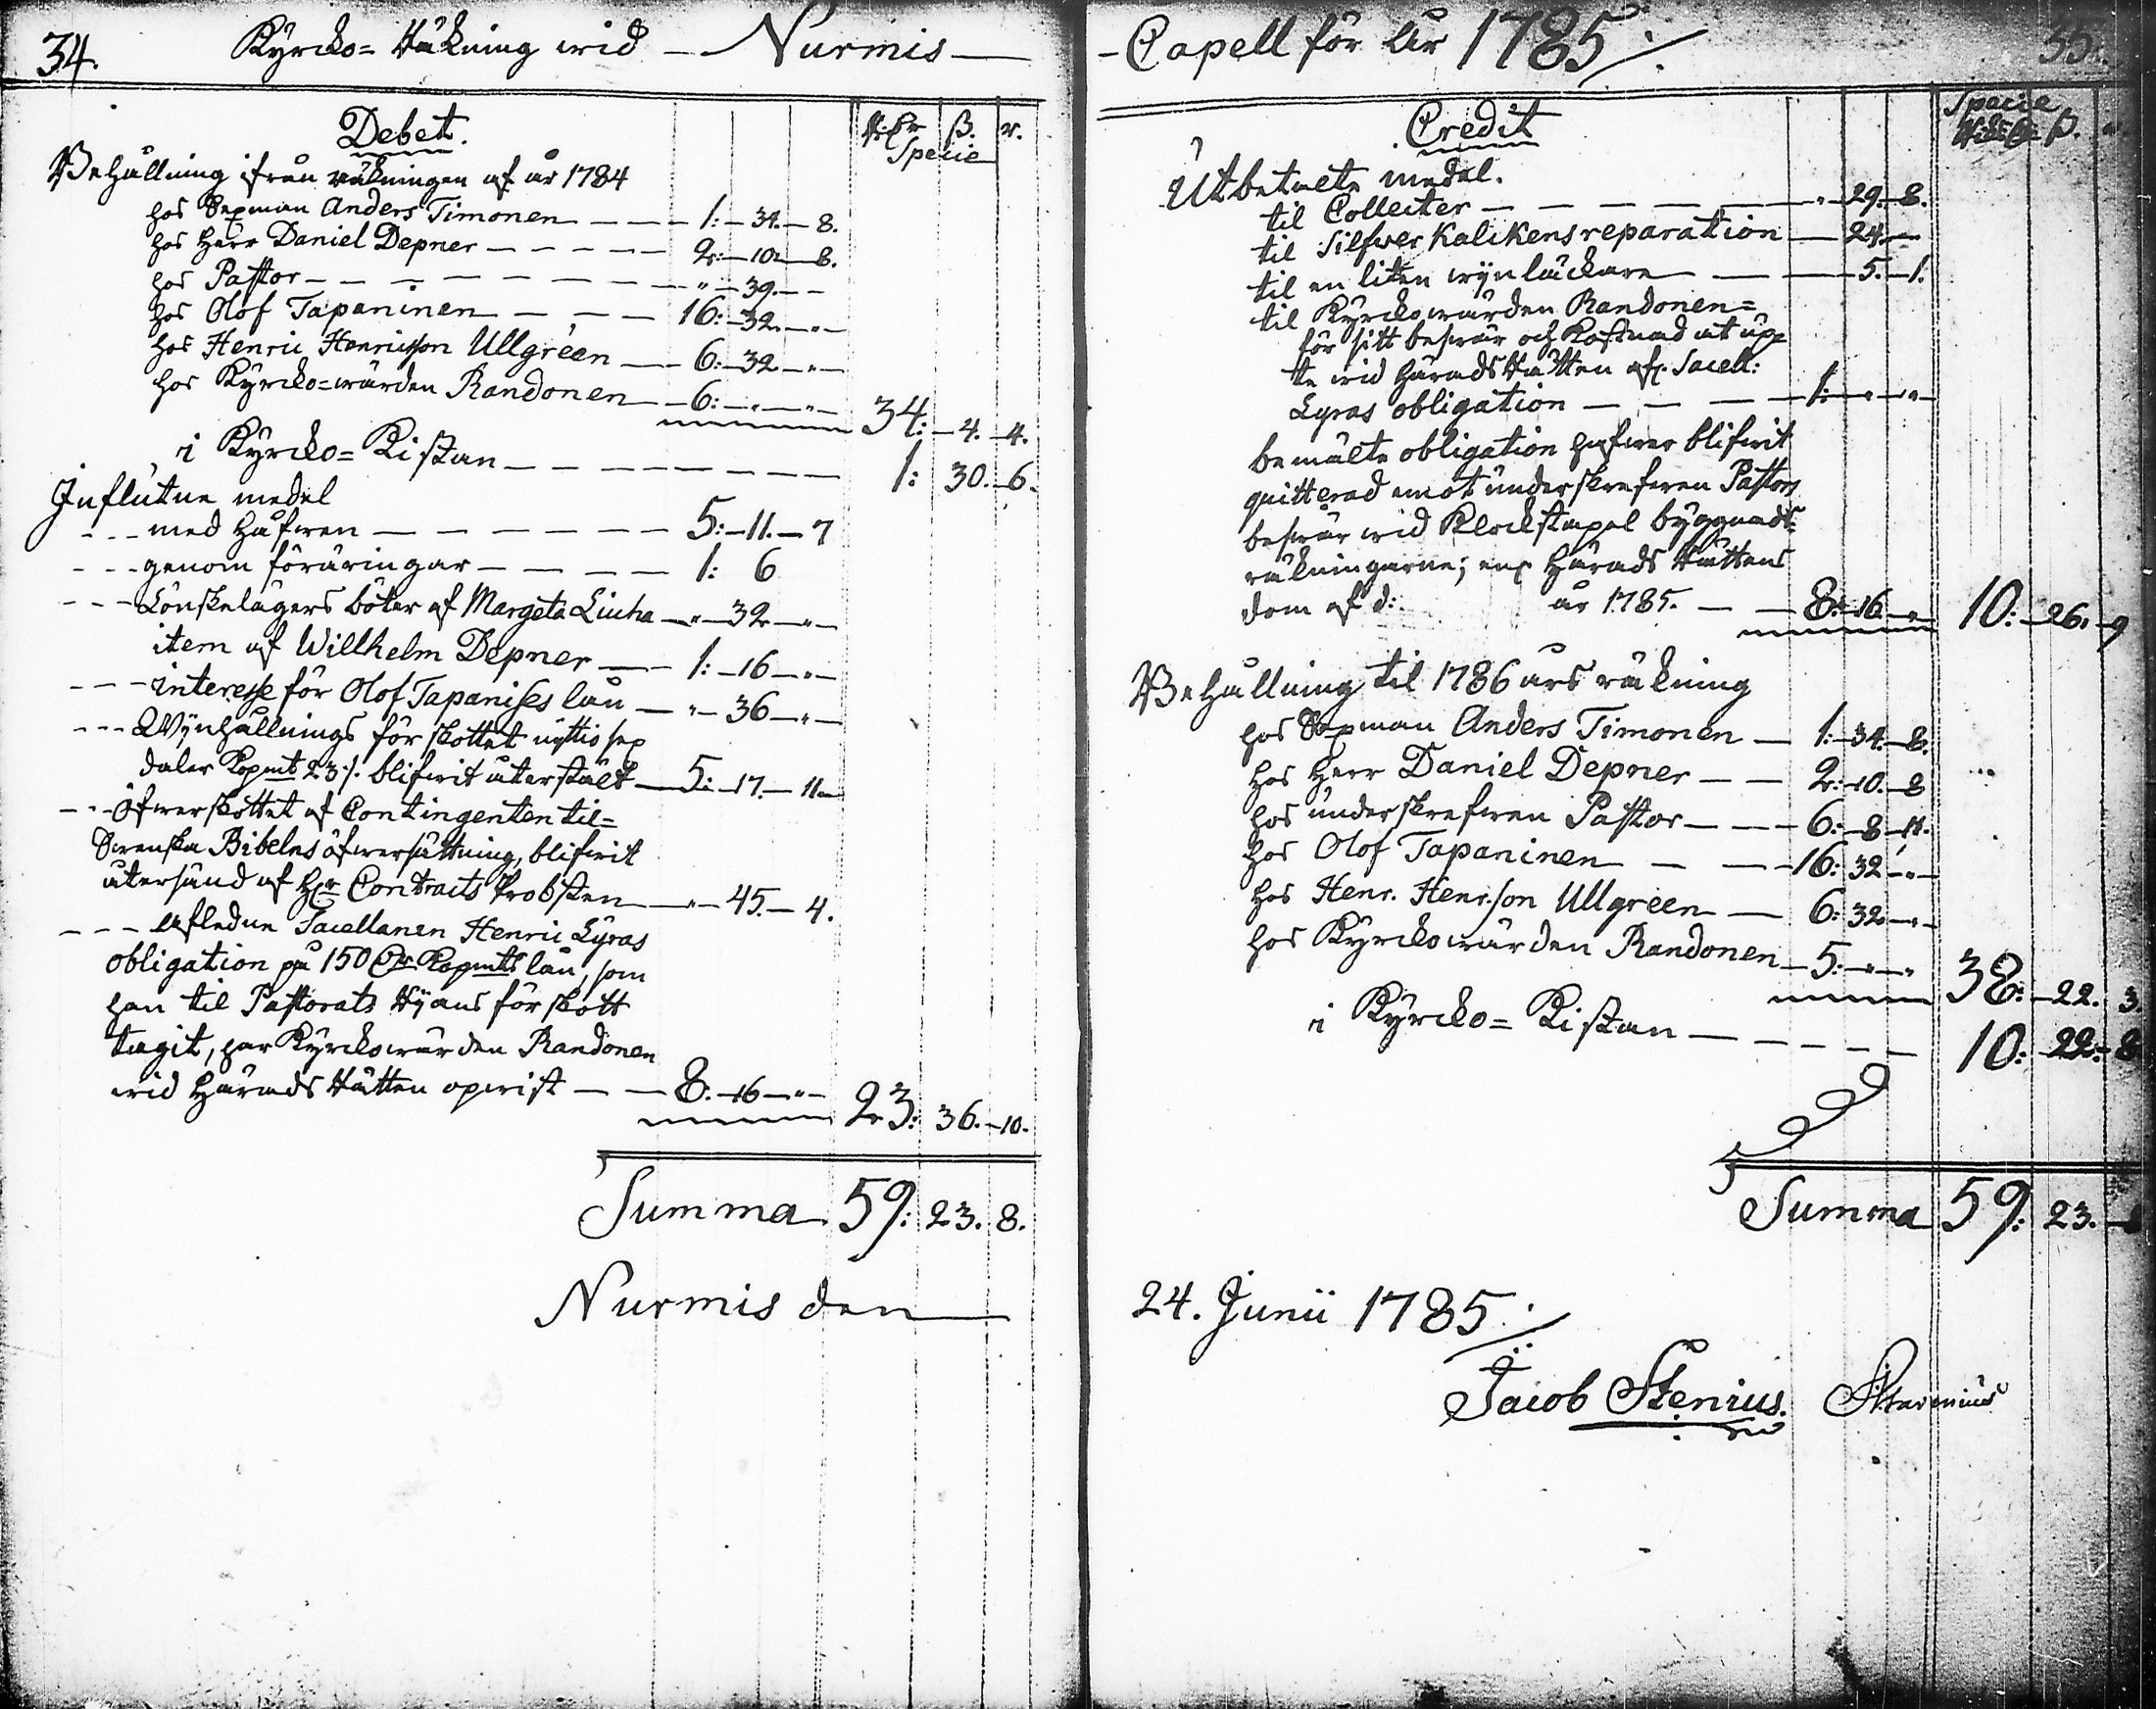 34.
Kyrcko=Räkning wid - Nurmis -
Debet.
R:dr ß. r.
Specie
Behållning ifrån räkningen af år 1784
hos Sexman Anders Timonen - - - 1: - 34. - 8.
hos Herr Daniel Depner - - - - - 2: - 10. - 8.
hos Pastor - - - - - - - - - " - 39. - -
hos Olof Tapaninen - - - - 16: - 32. - " -
hos Henric Henricsson Ullgréen - 6: - 32 - " -
hos Kyrcko=wärden Randonen - 6: - " - " - 34: - 4. - 4.
i Kyrcko=Kistan - - - - - - - - 1: 30. - 6.
Influtne medel
- - - med Håfwen - - - - - - - 5: - 11. - 7
- - - genom föräringar - - - - - 1: 6
- - - Lönskelägers böter af Margeta Liuha - " - 32 - " -
item af Willhelm Depner - - 1: - 16 - " -
- - - interesse för Olof Tapanises lån - " - 36 - " -
- - - Wynhållnings förskottet nyttio sex
daler Kopmt 23 ./. blifwit återstält - 5: - 17. - 11 -
- - - Öfwerskottet af Contingenten til=
Swenska Bibelns öfwersättning, blifwit
återsänd af Hr Contracts Probsten - " - 45. - 4.
- - - Afledne Sacellanen Henric Lyras
obligation på 150 Dr Kopmts lån, som
han til Pastorats Hyans förskott
tagit, har Kyrckowärden Randonen
wid Härads Rätten opwist - - 8: - 16 - " - 23: 36. - 10.
Summa 59: 23. 8.
Nurmis den
- Capell för år 1785 ./.
35.
Credit
Specie
R:dr ß.
Utbetalte medel.
til Collecter - - - - - - " - 29. - 8.
til Silfwer Kalkens reparation - 24. -
til en liten wynläckare - - - 5. - 1.
til Kyrckowärden Randonen=
för sitt beswär och Kostnad at up=
te wid Härads Rätten af Sacell:
Lyras obligation - - - - 1: - " - " -
bemälte obligation hafwer blifwit
quitterad emot underskrefwen Pastors
beswär wid Klockstapel byggnads=
räkningarne; enl Härads Rättens
dom af d: år 1785. - - 8: - 16. - " - 10: - 26. - 9
Behållning til 1786 års räkning
hos Sexman Anders Timonen - 1: - 34. - 8.
hos Herr Daniel Depner - - 2: - 10. - 8
hos underskrefwen Pastor - - - 6: - 8 - 11.
hos Olof Tapaninen - - - 16: 32 - " -
hos Henr. Henr.son Ullgréen - 6: 32 - " -
hos Kyrckowärden Randonen - 5: - " - " 38: - 22. 3.
i Kyrcko=Kistan - - - - - 10: - 22. - 8
Summa 59: 23. -
24. Junii 1785 ./.
Jacob Stenius.